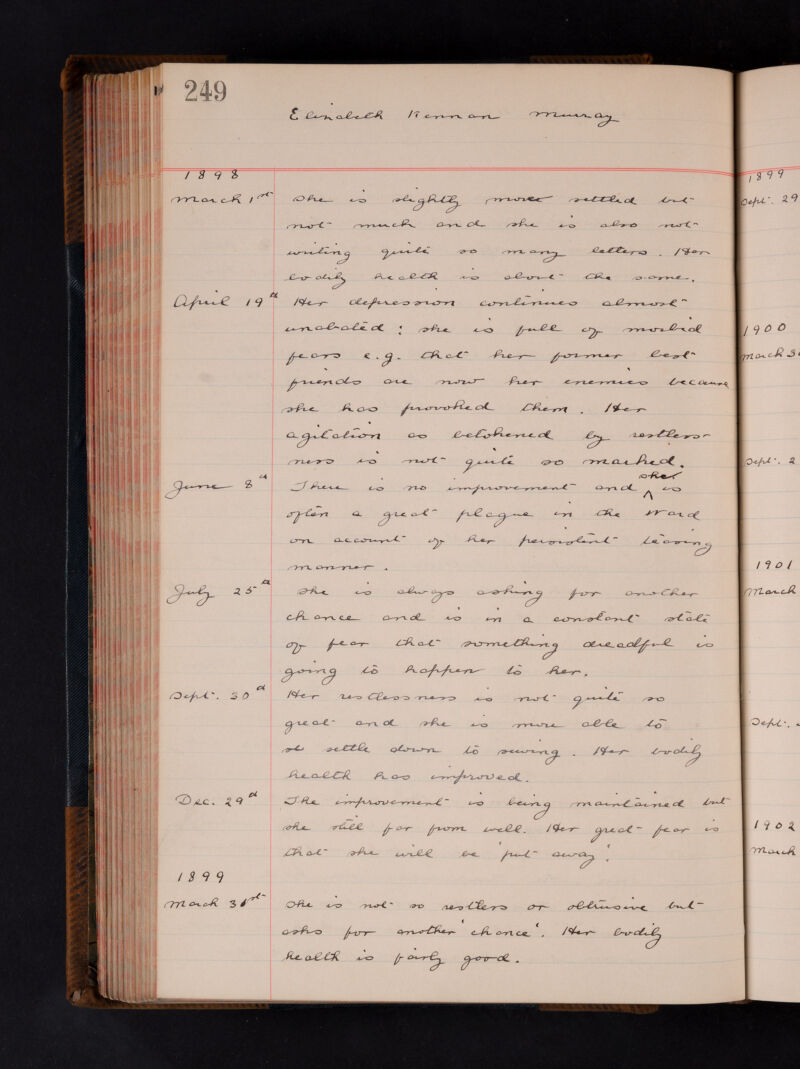 249
Elizabeth Kennan Murray
1898
March 1st She is slightly more settled but
not much and she is also not
writing quite so many letters. Her
bodily health is about the same.
April 19th Her depression continues almost
unabated; she is full of morbid
fears e.g. that her former best
friends are now her enemies because
she has provoked them. Her
agitation as betokened by restless-
ness is not quite so marked.
June 8th There is no improvement and she is
often a great plague in the Ward
on account of her persistent teasing
manner.
July 25th She is always asking for another
chance and is in a constant state
of fear that something dreadful is
going to happen to her.
Sept. 30th Her restlessness is not quite so
great and she is more able to
settle down to sewing. Her bodily
health has improved.
Dec. 29th The improvement is being maintained but
she still far from well. Her great fear is
that she will be 'put away'.
1899
March 31st She is not so restless or obtrusive but
asks for another 'chance'. Her bodily
health is fairly good.
1899
Sept. 29
1900
March 3
Sept. 2
1901
March
Sept.
1902
March